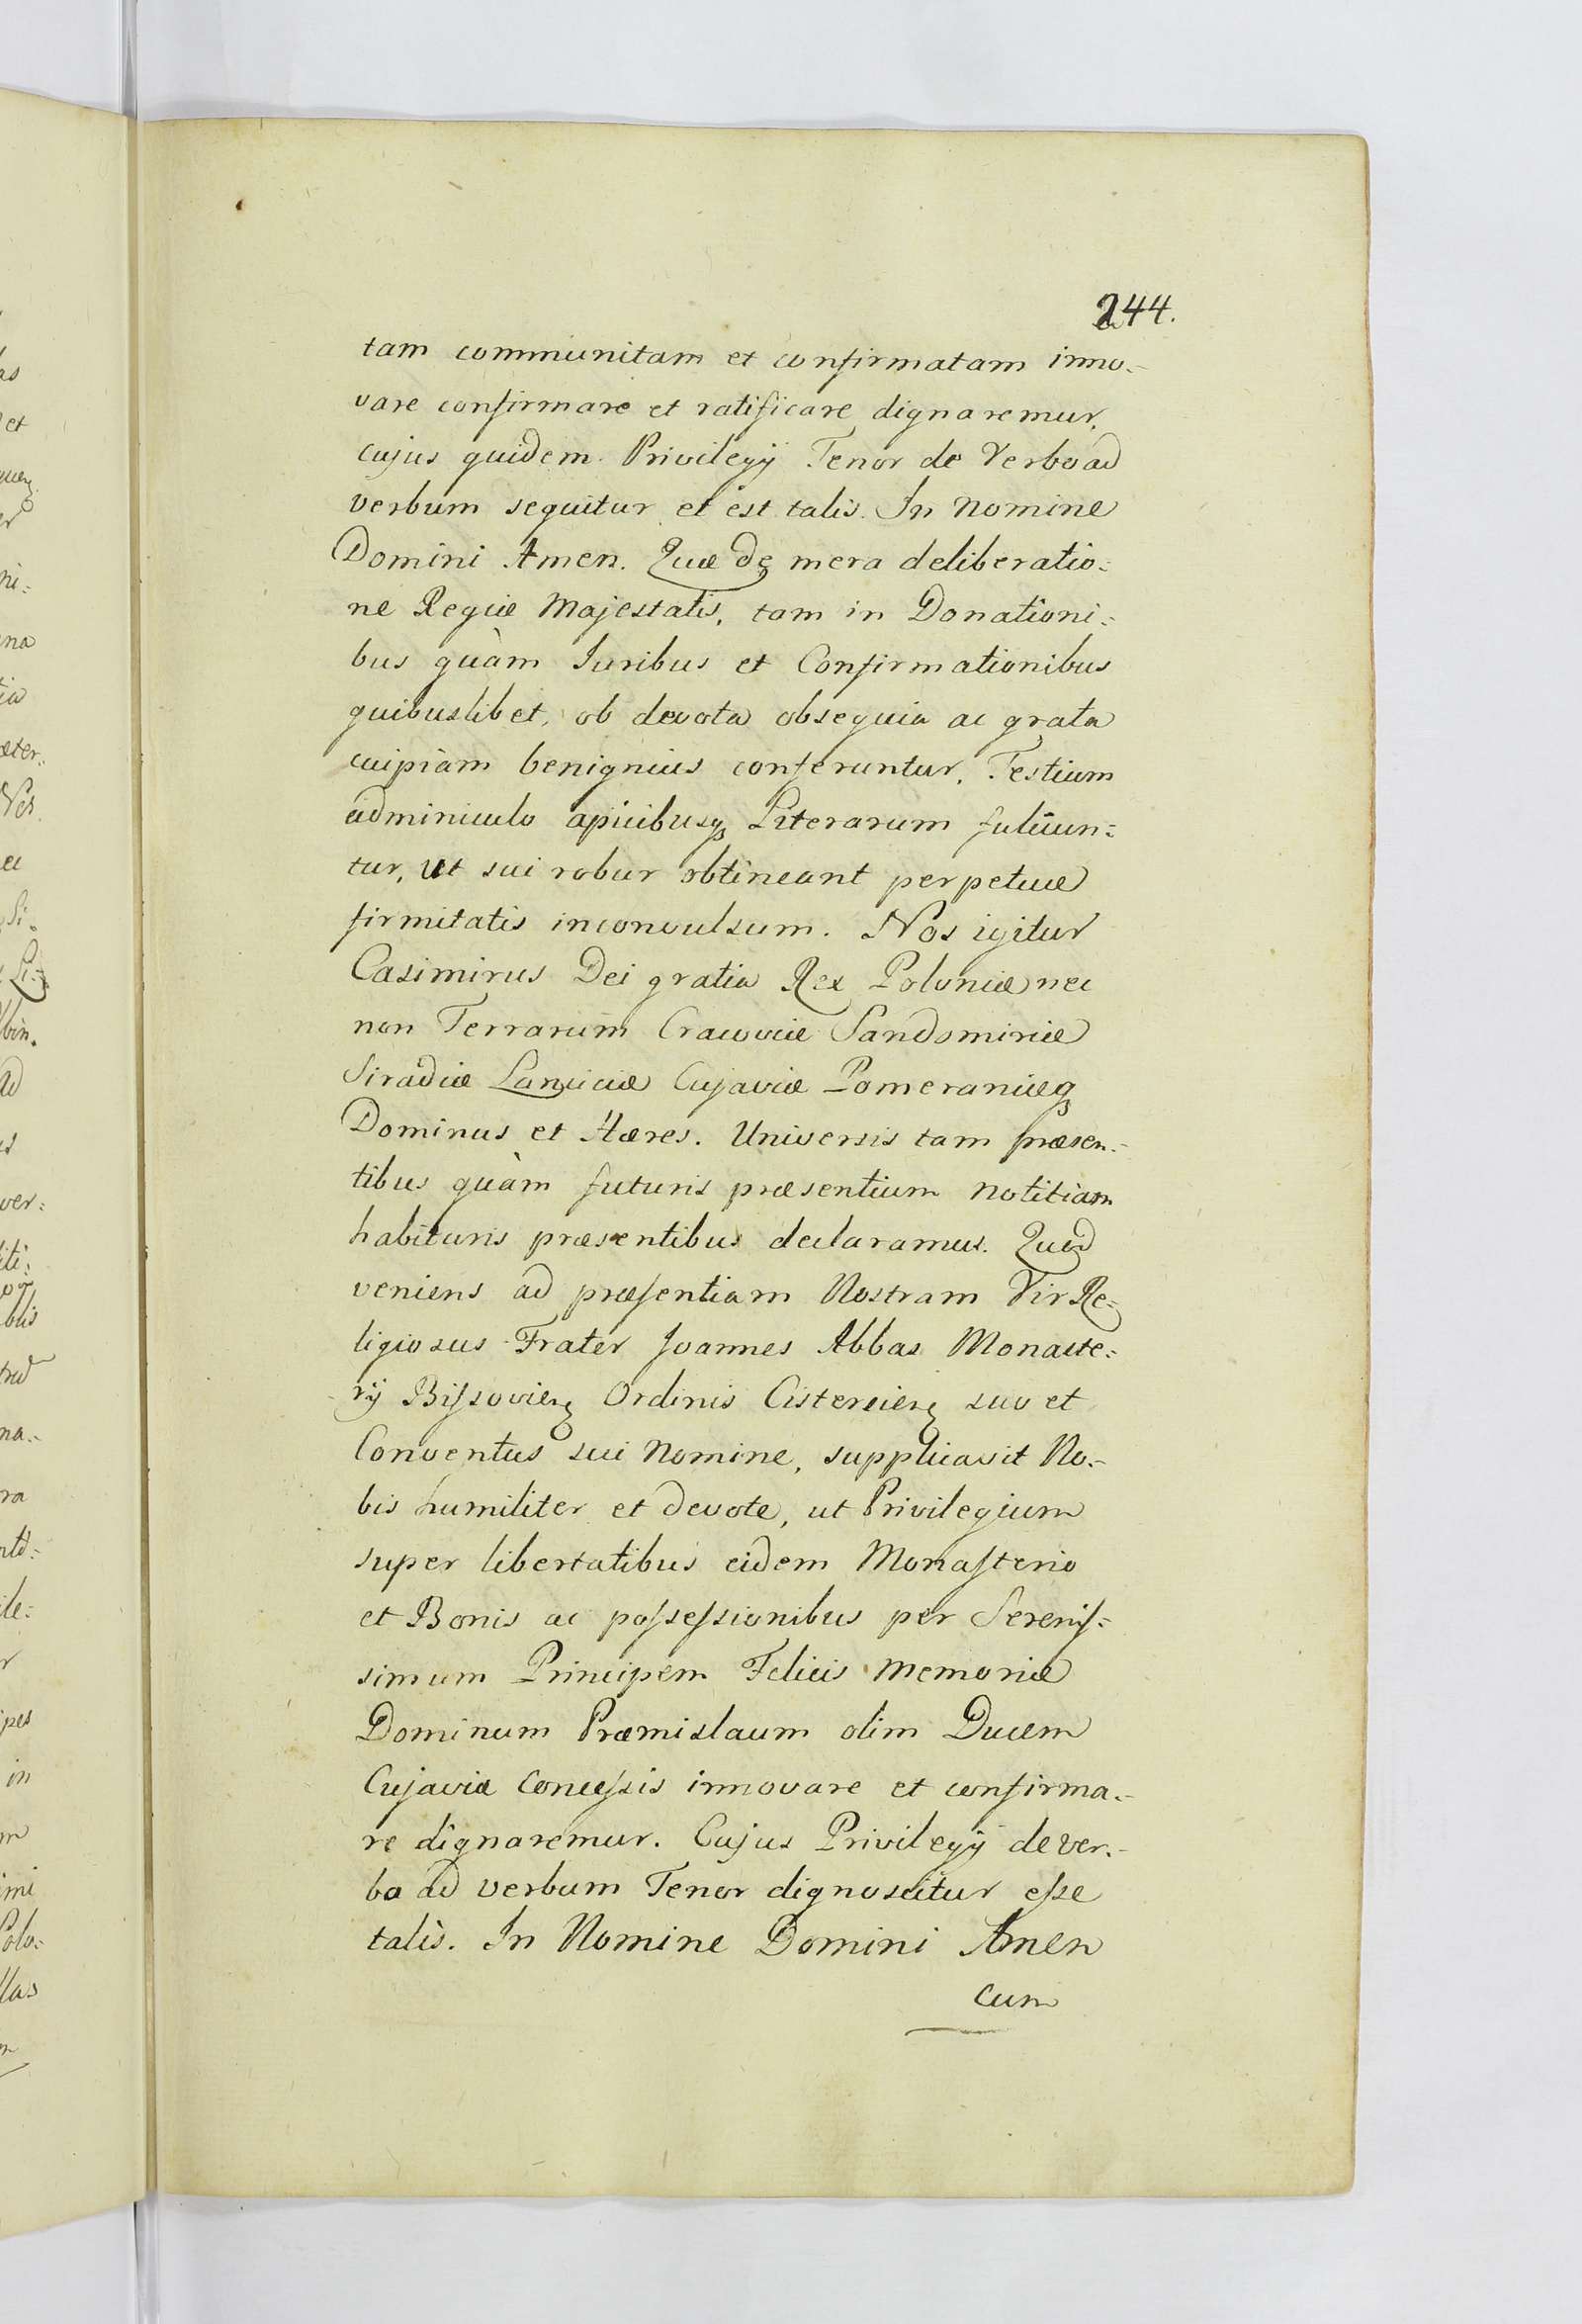 244.
tam communitam et confirmatam inno:
vare confirmare et ratificare dignaremur,
cujus quidem Privilegÿ Tenor de Verbo ad
verbum sequitur et est talis. In nomine
Domini Amen. Quæ de mera deliberatio:
ne Regiæ Majestatis, tam in Donationi:
bus quàm Iuribus et Confirmationibus
quibuslibet, ob devota obsequia ac grata
cuipiam benignius conferuntur, Testium
adminiculo apicibusq Literarum fulciun:
tur, ut sui robur obtineant perpetuæ
firmitatis inconvulsum. Nos igitur
Casimirus Dei gratia Rex Poloniæ nec
non Terrarum Cracoviæ Sandomiriæ
Siradiæ Lanciciæ Cujaviæ Pomeraniæq
Dominus et Hæres. Universis tam præsen:
tibus quàm futuris præsentium notitiam
habituris præsentibus declaramus. Quod
veniens ad præsentiam Nostram Vir Re:
ligiosus Frater Joannes Abbas Monaste:
rÿ Bissovien Ordinis Cistercien suo et
Conventus sui Nomine, supplicavit No:
bis humiliter et devote, ut Privilegium
super libertatibus eidem Monasterio
et Bonis ac possessionibus per Serenis:
simum Principem Felicis memoriæ
Dominum Præmislaum olim Ducem
Cujaviæ Concessis innovare et confirma:
re dignaremur. Cujus Privilegÿ de ver:
bo ad verbum Tenor dignoscitur esse
talis. In Nomine Domini Amen
Cum